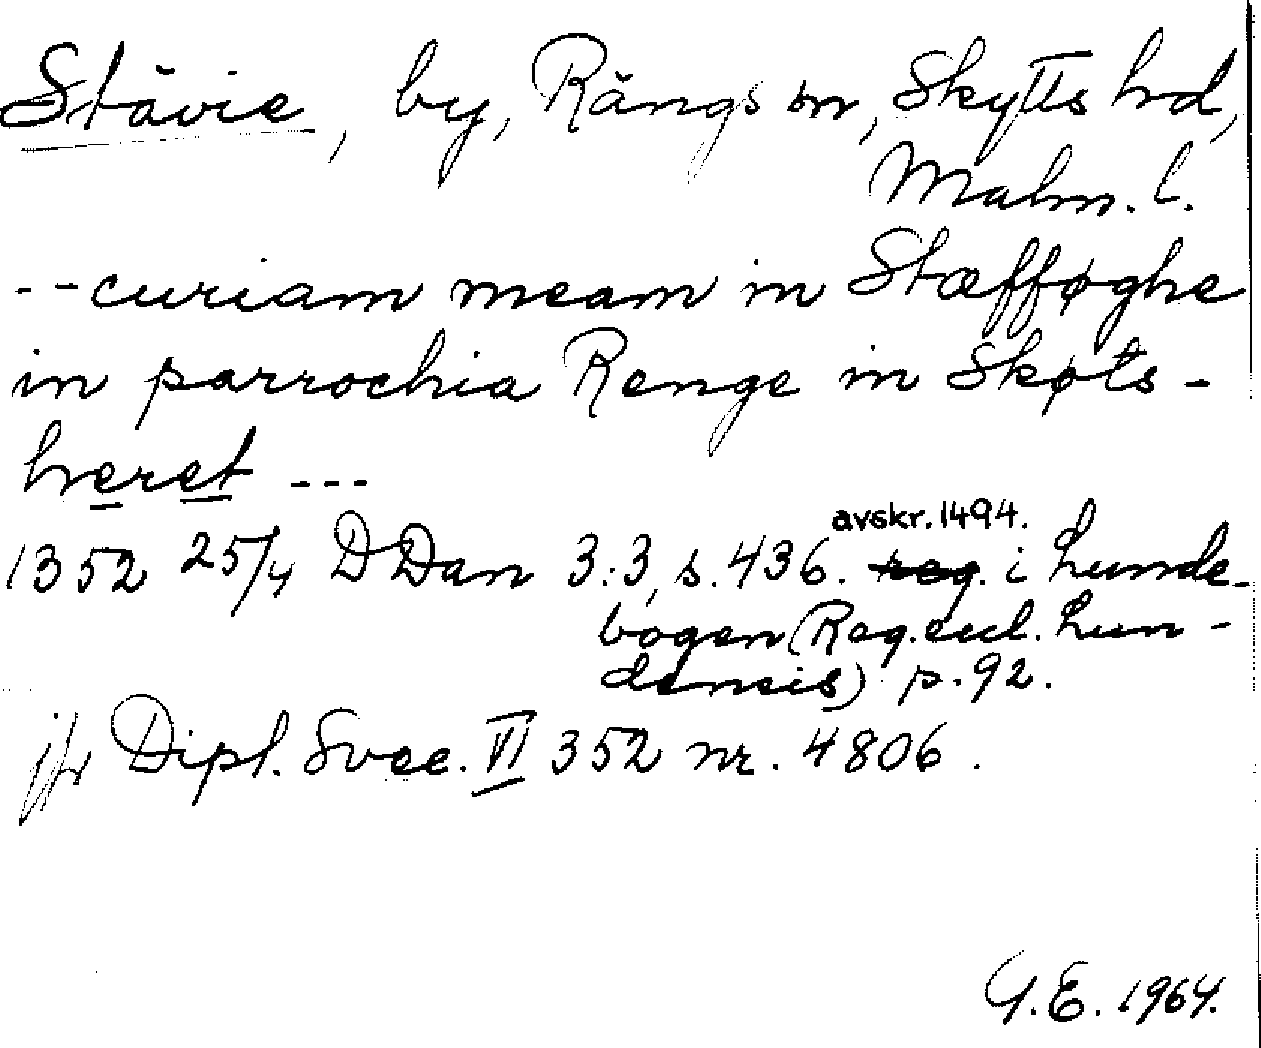 Stävie, by, Rängs sn, Skytts hd,
Malm. l.
--curiam meam in Stæfføghe
in parrochia Renge in Skøts-
heret ---
avskr. 1494.
1352 25/4 DDan 3:3, s. 436. reg. i Lunde-
bogen (Reg. eccl. Lun-
densis) p. 92.
jfr Dipl. Svec. VI 352 nr. 4806.
G.E. 1964.